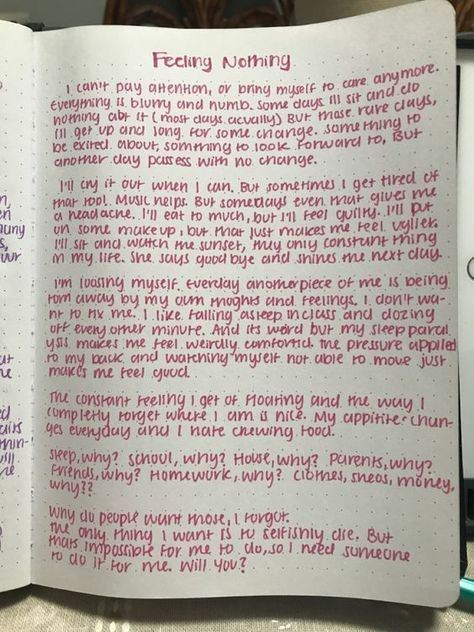 Feeling Nothing
I can't pay attention, or bring myself to care anymore.
Everything is blurry and numb. Some days I'll sit and do
nothing abt it (most days acually) But those rare days,
I'll get up and long for some change. Something to
be exited about, somthing to look forward to, But
another day passess with no change.
I'll cry it out when I can. But sometimes I get tired of
that too. Music helps. But somedays even that gives me
a headache. I'll eat to much, but I'll feel guilty. I'll put
on some make up, but that just makes me feel uglier.
I'll sit and watch the sunset, they only constant thing
in my life. She says goodbye and shines the next day.
I'm loosing myself. Everday another piece of me is being
torn away by my own thoghts and feelings. I don't wa-
nt to fix me. I like falling asleep in class and dozing
off every other minute. And its weird but my sleep paral
ysis makes me feel weirdly comforted. The pressure applied
to my back and watching myself not able to move just
makes me feel good.
The constant feeling I get of floating and the way I
completly forget where I am is nice. My appitite chan-
ges everyday and I hate chewing food.
Sleep, why? School, why? House, why? Parents, why?
Friends, why? Homework, why? Clothes, shoes, money,
why??
Why do people want those, I forgot.
the only thing I want is to selfishly die. But
thats impossible for me to do, so I need someone
to do it for me. Will you?